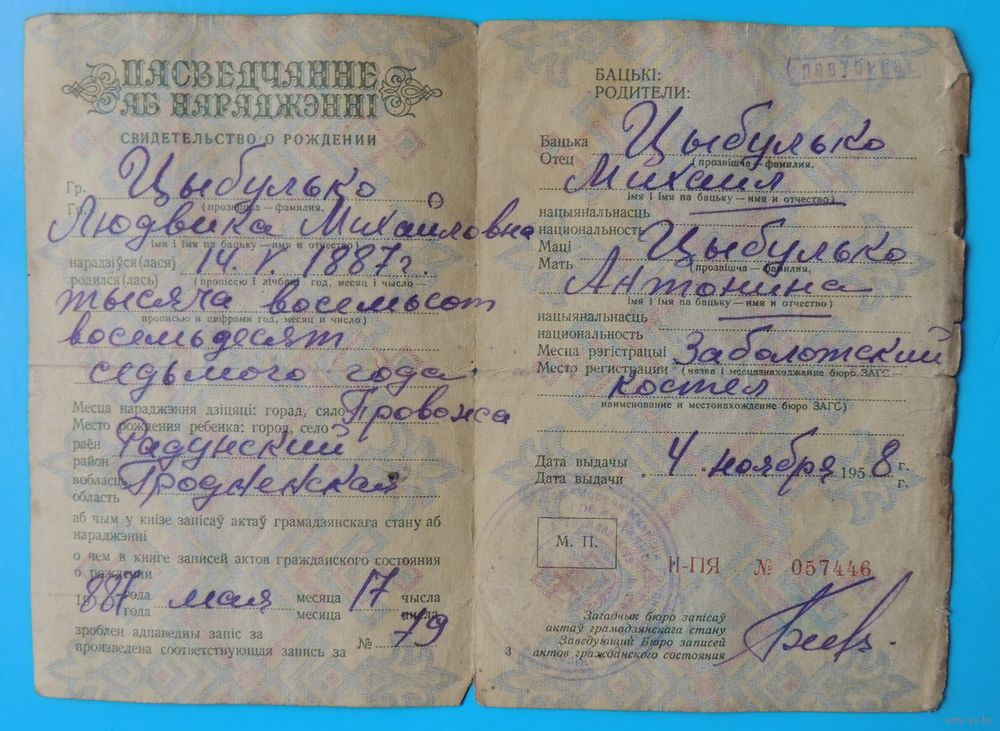 ПАСВЕДЧАННЕ
АБ НАРАДЖЭННІ
СВИДЕТЕЛЬСТВО О РОЖДЕНИИ
Гр. Цыбулько
Гр. (прозвішча—фамилия,
Людвика Михайловна
імя і імя па бацьку—имя и отчество)
нарадзіўся(лася) 14. V. 1887г.
родился(лась) (пропіссю і лічбамі год, месяц і число—
тысяча восемьсот
прописью и цифрами год, месяц и число)
восемьдесят
седьмого года
Месца нараджэння дзіцяці: горад, сяло Провожа
Место рождения ребенка: город, село
раён Радунский
район
вобласць Гродненская
область
аб чым у кнізе запісаў актаў грамадзянскага стану аб
нараджэнні
о чем в книге записей актов гражданского состояния
о рождении
1887 года мая месяца 17 чысла
года месяца числа
зроблен адпаведны запіс за № 79
произведена соответствующая запись за
ПОВТОРНОЕ
БАЦЬКІ:
РОДИТЕЛИ:
Бацька Цыбулько
Отец (прозвішча—фамилия,
Михаил
імя і імя па бацьку—имя и отчество)
нацыянальнасць
национальность
Маці Цыбулько
Мать (прозвішча—фамилия,
Антонина
імя і імя па бацьку—имя и отчество)
нацыянальнасць
национальность
Месца рэгістрацыі Заболотский
Место регистрации (назва і месцазнаходжание бюро ЗАГС—
костел
наименование и местонахождение бюро ЗАГС)
Дата выдачы „4“ ноября 1958 г.
Дата выдачи г.
М. П.
II-ГІЯ № 057446
Загадчык бюро запісаў
актаў грамадзянскага стану
Заведующий Бюро записей
актов гражданского состояния
3
www.ay.by